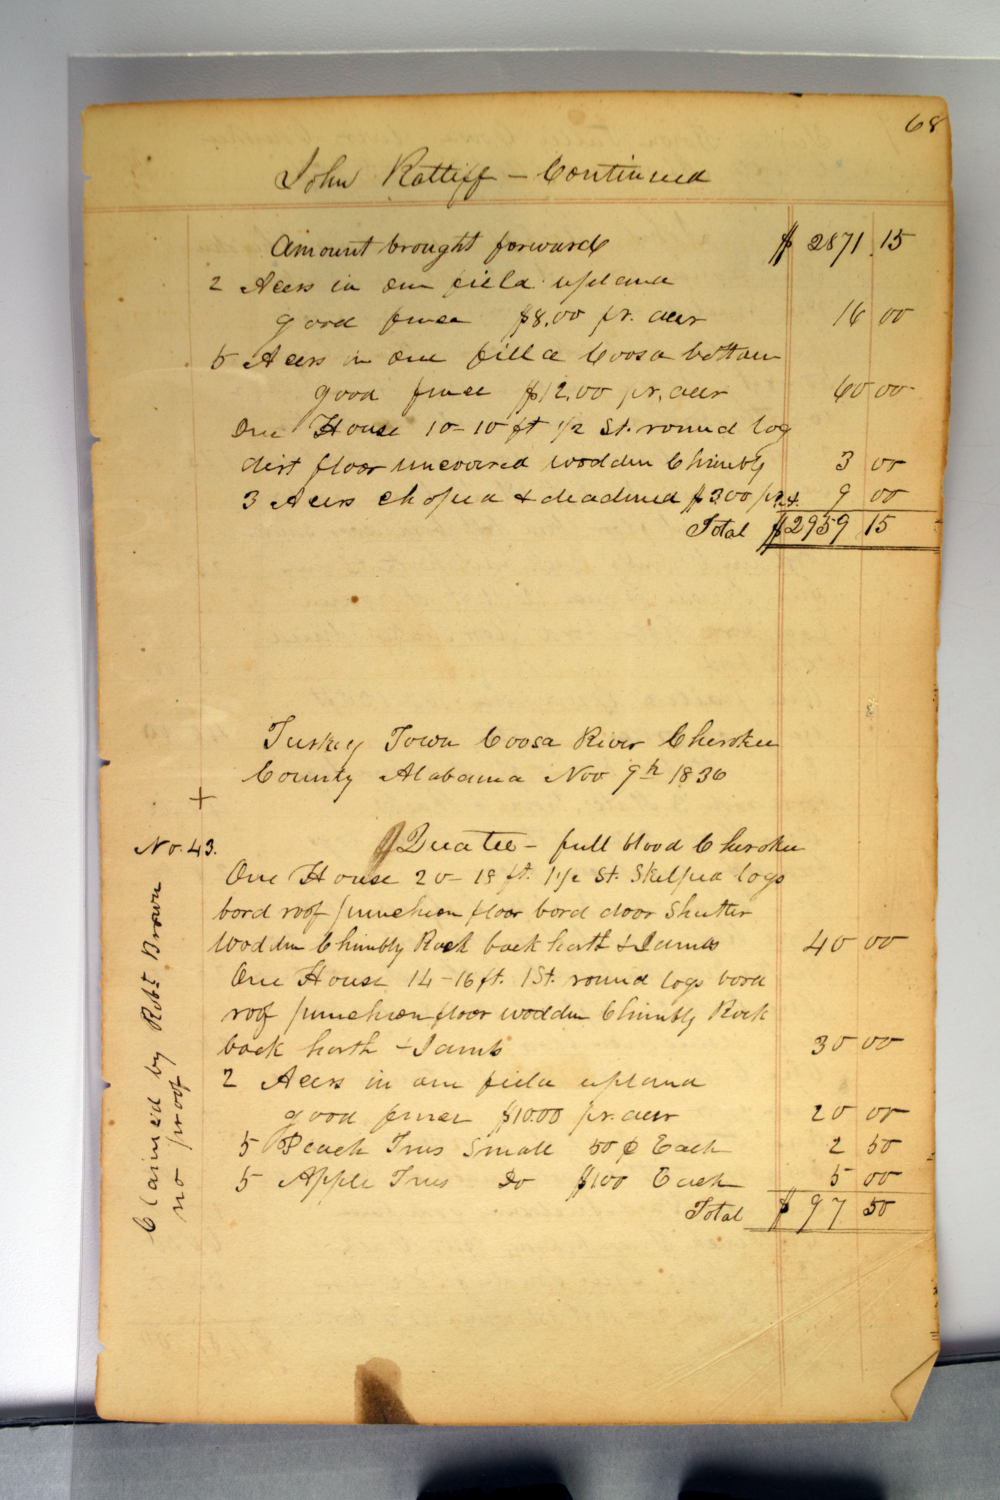 68
John Ratliff – Continued
Amount brought forward $ 2871.15
2 Acers in one field upland
good fence $8.00 pr. acer 16 00
5 Acers in one field Coosa bottom
good fence $12.00 pr. acer 60 00
One House 10–10 ft 1/2 St. round log
dirt floor uncovered wooden Chimbly 3 00
3 Acers choped & deadened $3.00 pr. 9 00
Total $2959 15
Turkey Town Coosa River Cherokee
County Alabama Nov 9th 1836
+
No. 43. Quatee – full blood Cherokee
One House 20–18 ft. 1 1/2 St. Skelped logs
bord roof puncheon floor bord door Shutter
wooden Chimbly Rock back harth & Jambs 40 00
One House 14–16 ft. 1 St. round logs bord
roof puncheon floor wooden Chimbly Rock
back harth & Jambs 30 00
2 Acers in one field upland
good fence $10.00 pr. acer 20 00
5 Peach Trees Small 50 ¢ Each 2 50
5 Apple Trees Do $1.00 Each 5 00
Total $ 97 50
Claimed by Robt Brown
no proof